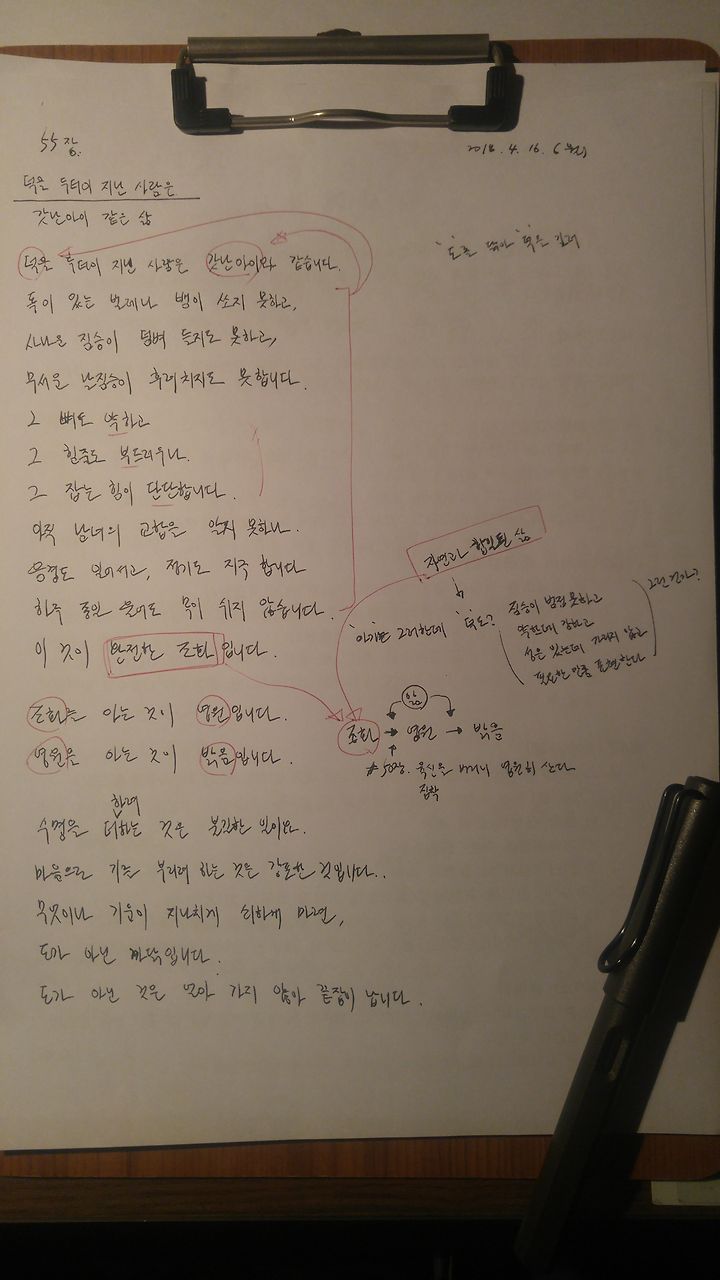 55장.
2018. 4. 16. 6
덕을 두터이 지닌 사람은
갓난아이 같은 삶
덕을 두터이 지닌 사람은 갓난아이와 같습니다.
'도'를 닦아 '덕'을
독이 있는 벌레나 뱀이 쏘지 못하고,
사나운 짐승이 덤벼 들지도 못하고,
무서운 날짐승이 후려치지도 못합니다.
그 뼈도 약하고
그 힘줄도 부드러우나,
그 잡는 힘이 단단합니다.
아직 남녀의 교합을 알지 못하나.
음경도 일어서고, 정기도 지극 합니다
하루 종일 울어도 목이 쉬지 않습니다.
이 것이 완전한 조화입니다.
자연과 합일된 삶
'아이'는 그러한데 '덕'도?
짐승이 범접 못하고
약한데 강하고
성은 있는데 가지지 않고
필요한 만큼 표현한다
그런 건가?
조화를 아는 것이 영원입니다.
영원을 아는 것이 밝음입니다.
앎
조화 → 영원 → 밝음
# 50장. 육신을 버려니 영원히 산다
집착
하려
수명을 더하는 것은 불길한 일이요.
마음으로 기를 부리려 하는 것은 강포한 것입니다..
무엇이나 기운이 지나치게 쇠하게 마련,
도가 아닌 까닭입니다.
도가 아닌 것은 얼마 가지 않아 끝장이 납니다.